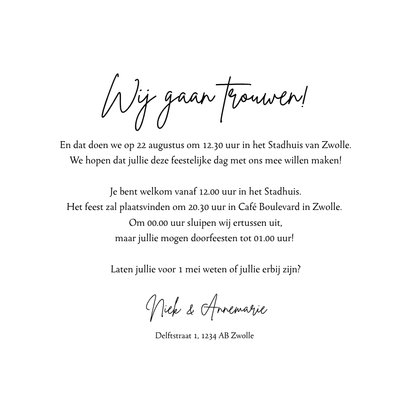 Wij gaan trouwen!
En dat doen we op 22 augustus om 12.30 uur in het Stadhuis van Zwolle.
We hopen dat jullie deze feestelijke dag met ons mee willen maken!
Je bent welkom vanaf 12.00 uur in het Stadhuis.
Het feest zal plaatsvinden om 20.30 uur in Café Boulevard in Zwolle.
Om 00.00 uur sluipen wij ertussen uit,
maar jullie mogen doorfeesten tot 01.00 uur!
Laten jullie voor 1 mei weten of jullie erbij zijn?
Niek & Annemarie
Delftstraat 1, 1234 AB Zwolle